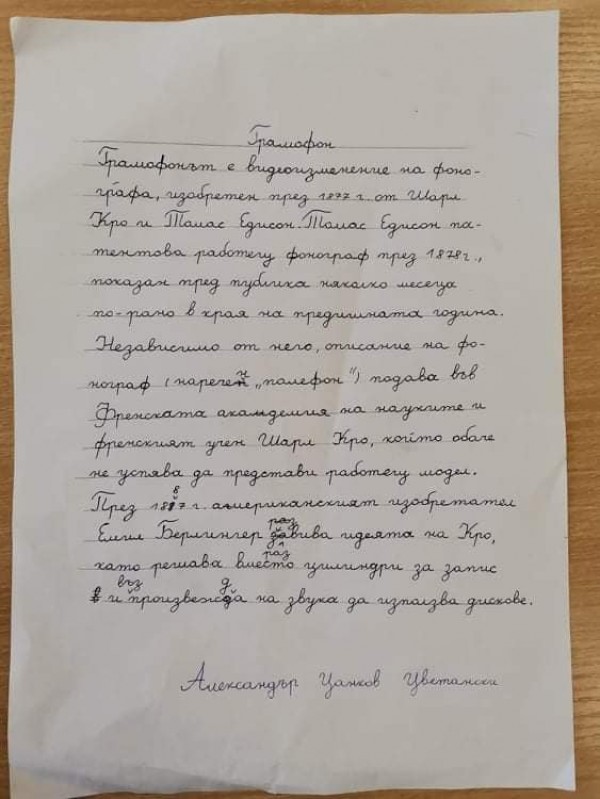 Грамофон
Грамофонът е видеоизменение на фоно-
графа, изобретен през 1877 г. от Шарл
Кро и Томас Едисон. Томас Едисон па-
тентова работещ фонограф през 1878 г.,
показан пред публика няколко месеца
по-рано в края на предишната година.
Независимо от него, описание на фо-
нограф (наречен „палефон") подава във
Френската академия на науките и
френският учен Шарл Кро, който обаче
не успява да представи работещ модел.
През 1887 г. американският изобретател
Емил Берлингер развива идеята на Кро,
като решава вместо цилиндри за запис
и произвежда на звука да използва дискове.
Александър Цанков Цветански